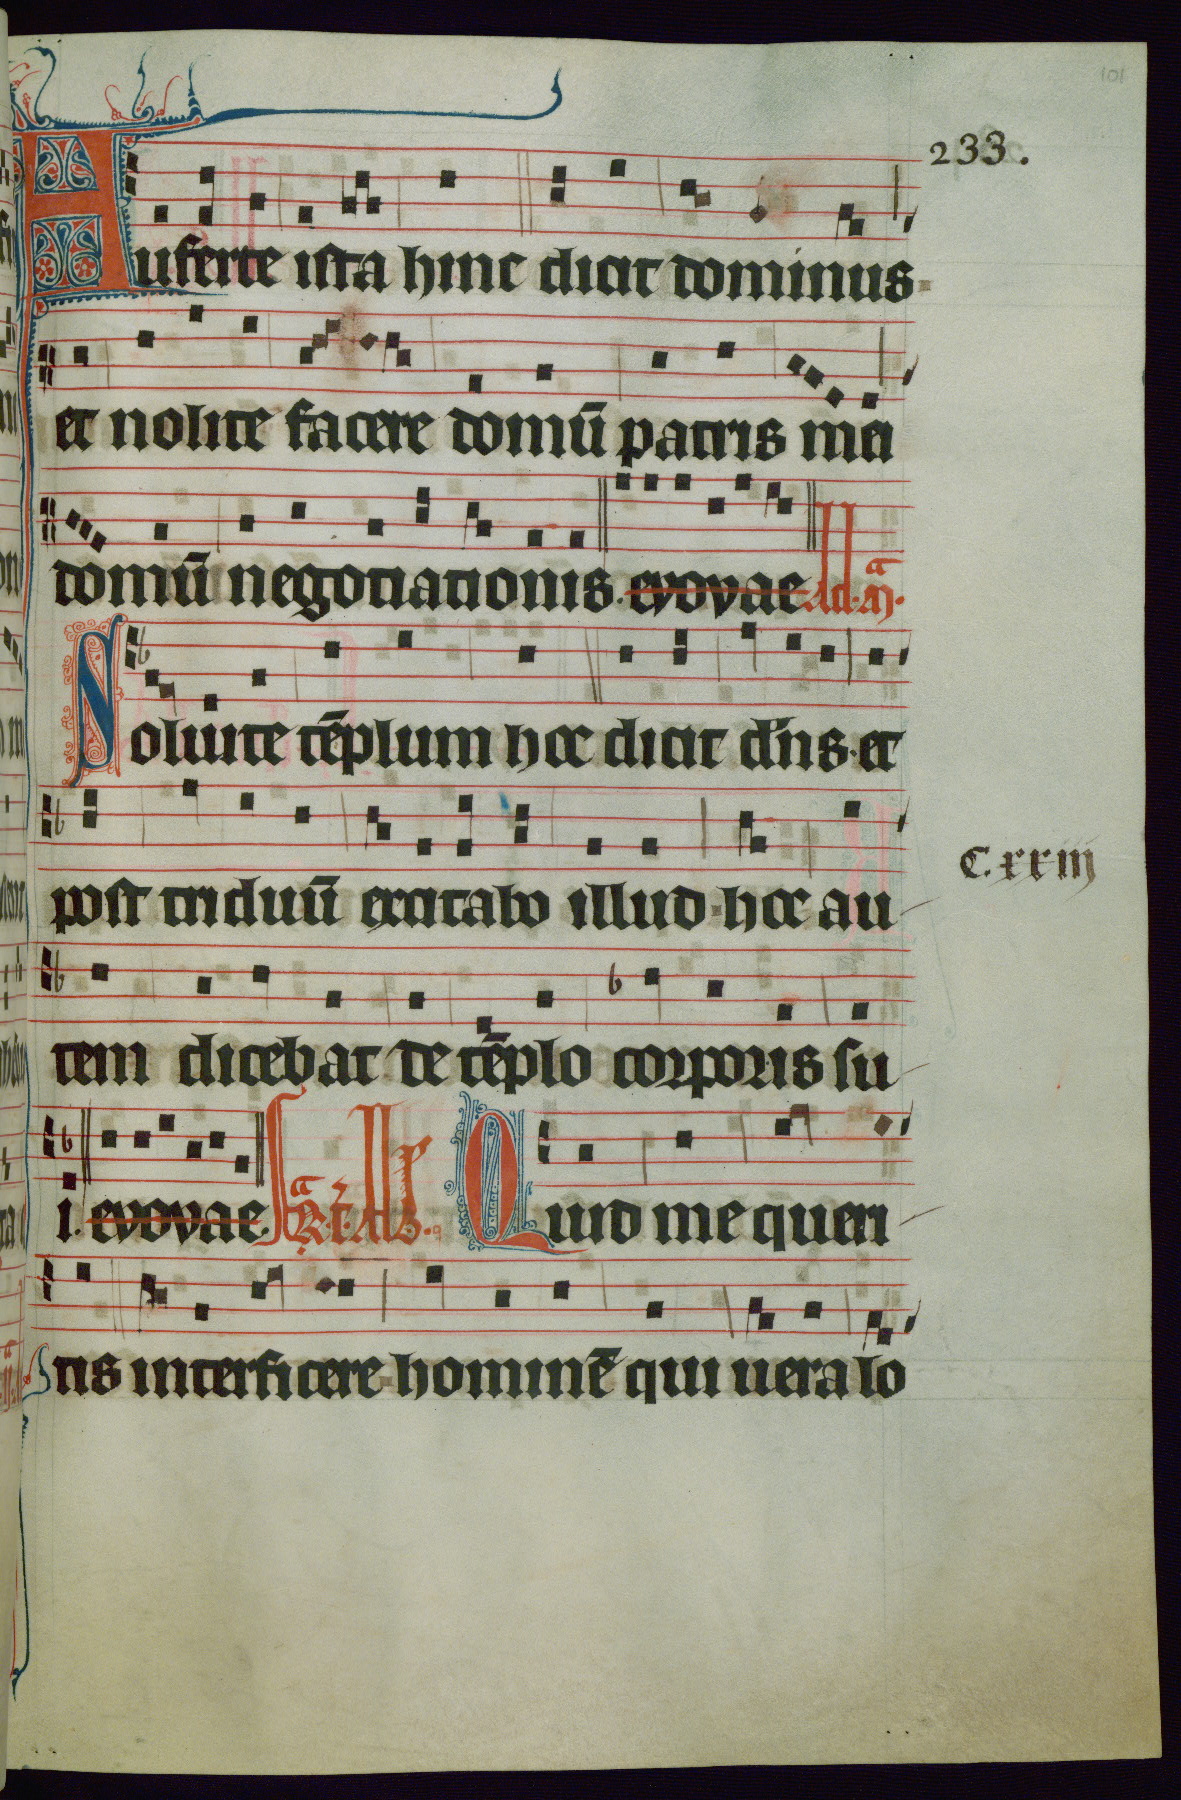 101
233.
Auferte ista hinc dicit dominus
et nolite facere domū patris mei
domū negotiationis. evovae Ad. a
Soluite tēplum hoc dicit dn̄s. et
post triduū excitabo illud. hoc au
C. xxiij
tem dicebat de tēplo corporis su
i. evovae. Quid me queri
tis interficere hominē qui uera lo